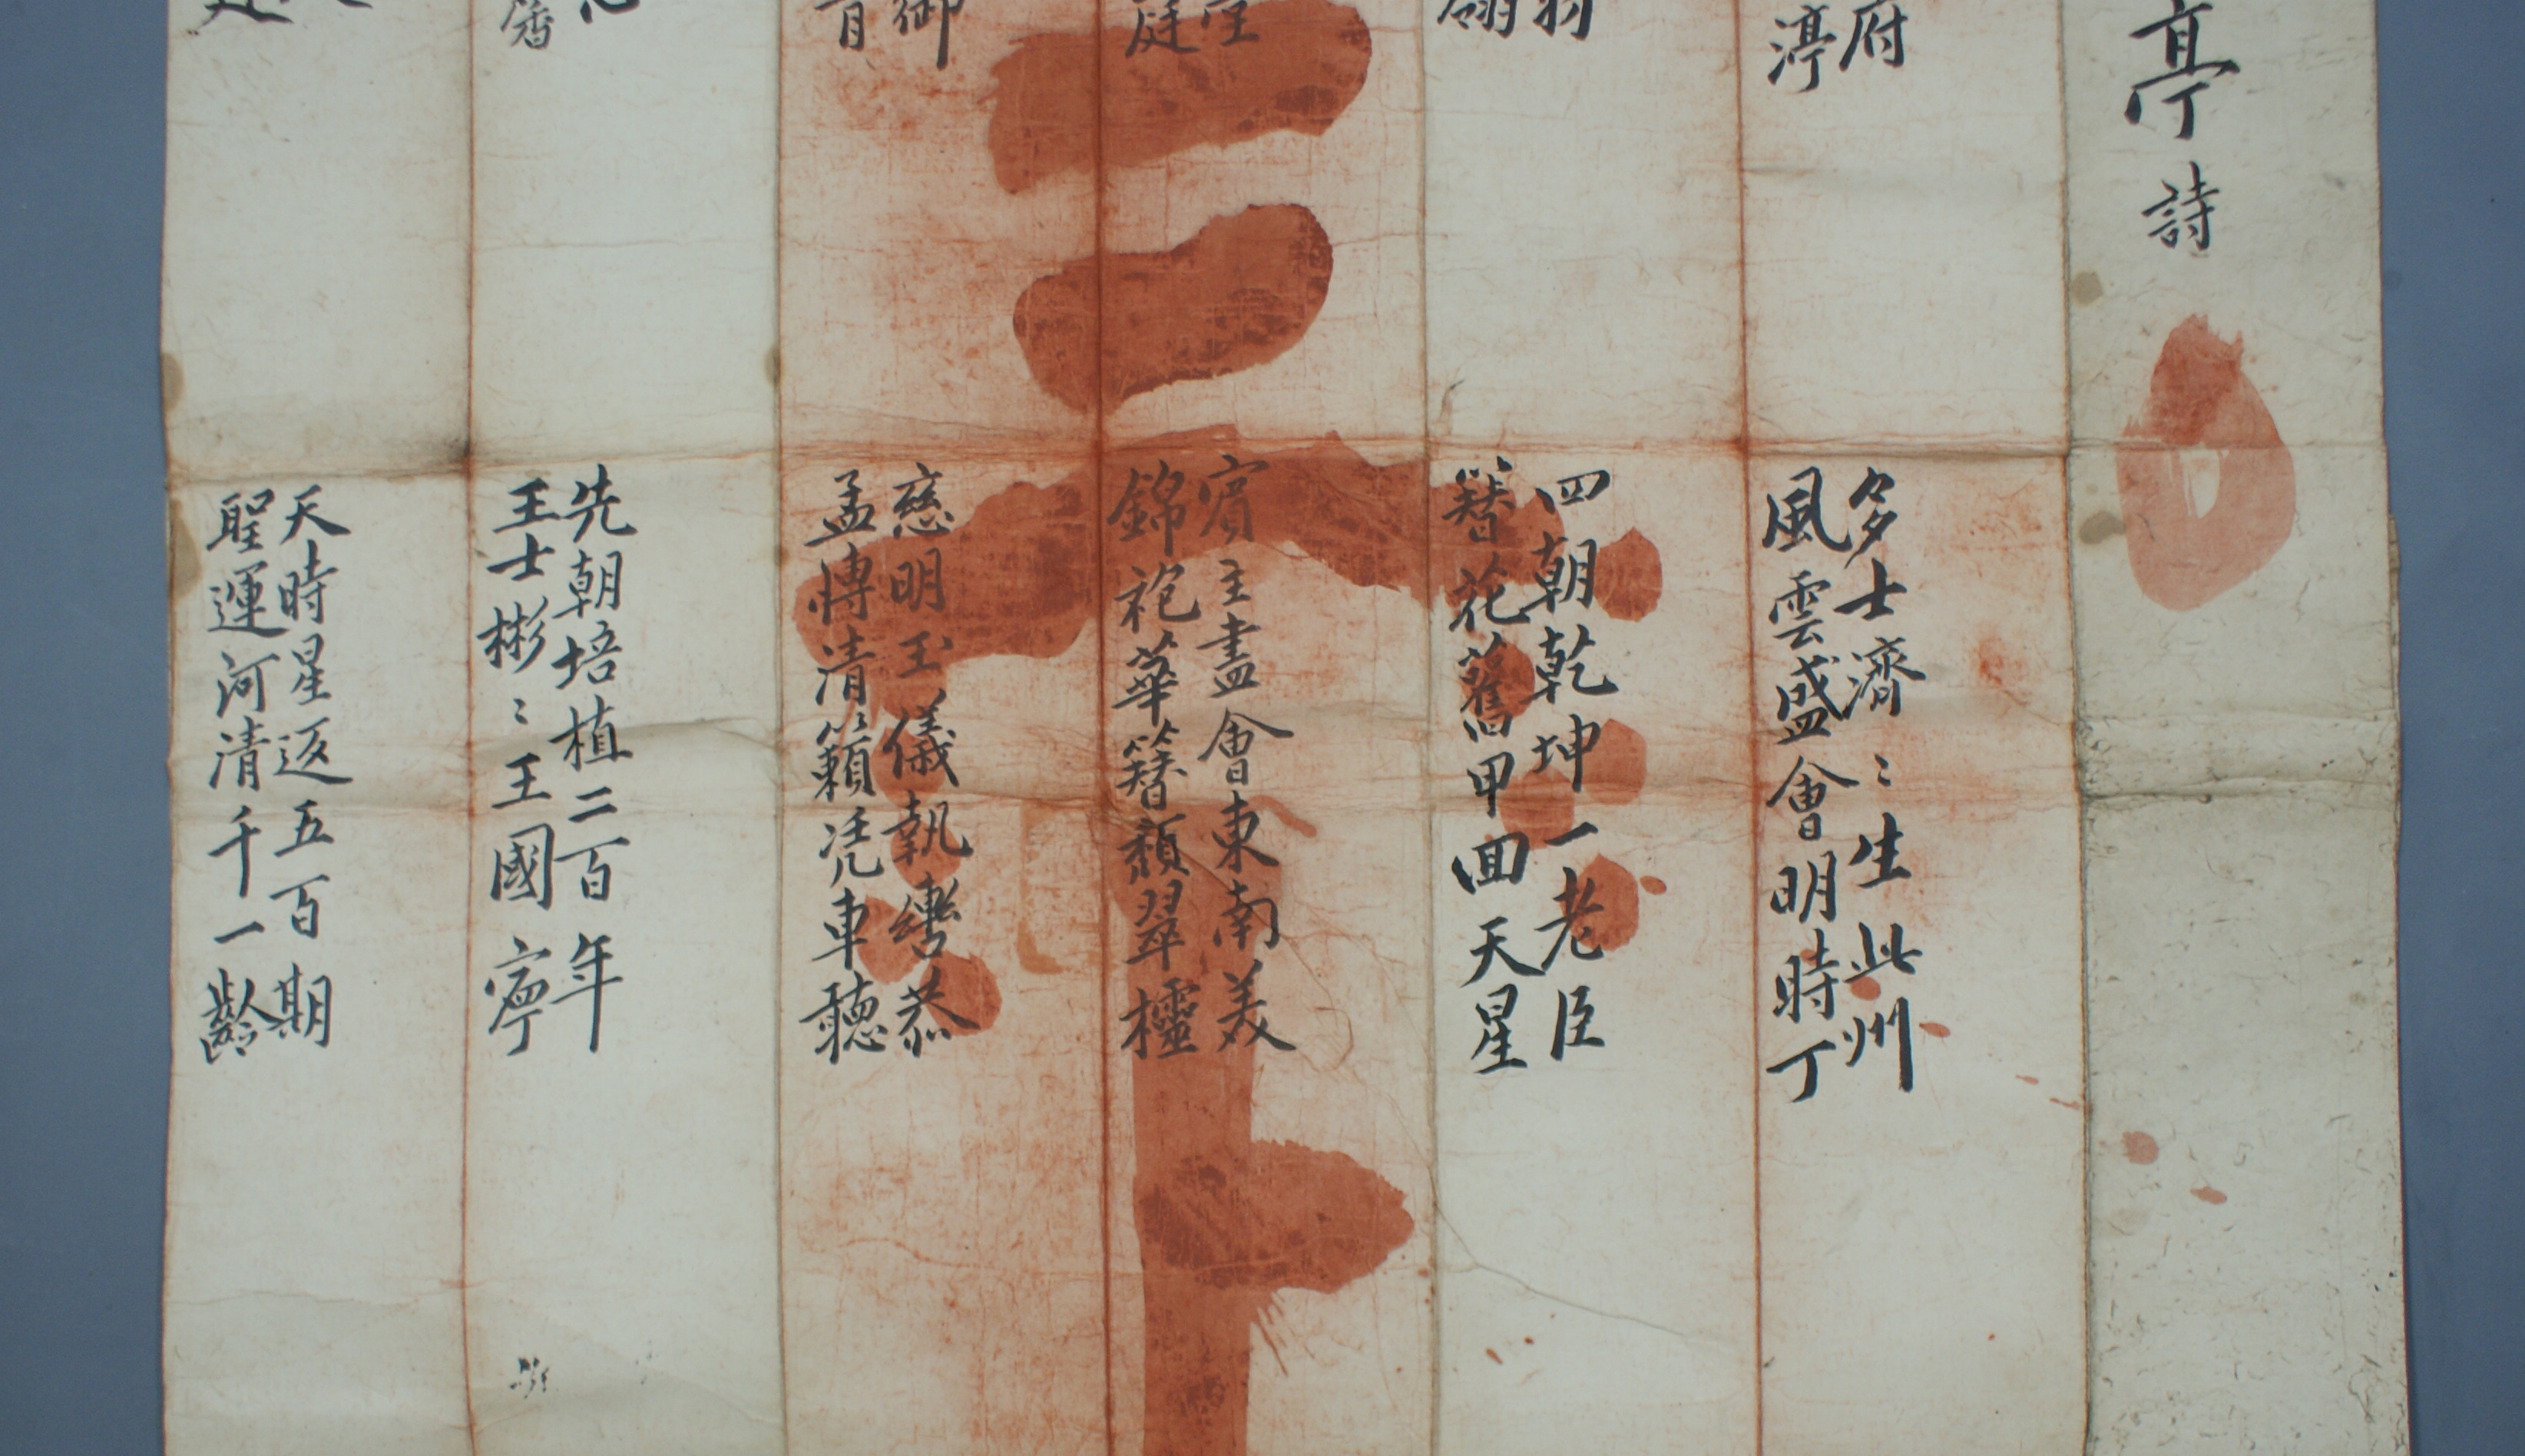 亭詩
府
渟
多士濟〻生此州
風雲盛會明時丁
翎
四朝乾坤一老臣
簪花舊甲回天星
庭
賓主盡會東南美
錦袍華簪顏翠櫺
御
慈明玉儀執轡恭
孟博清籟凭車聽
先朝培植二百年
王士彬〻王國寧
天時星返五百期
聖運河清千一齡